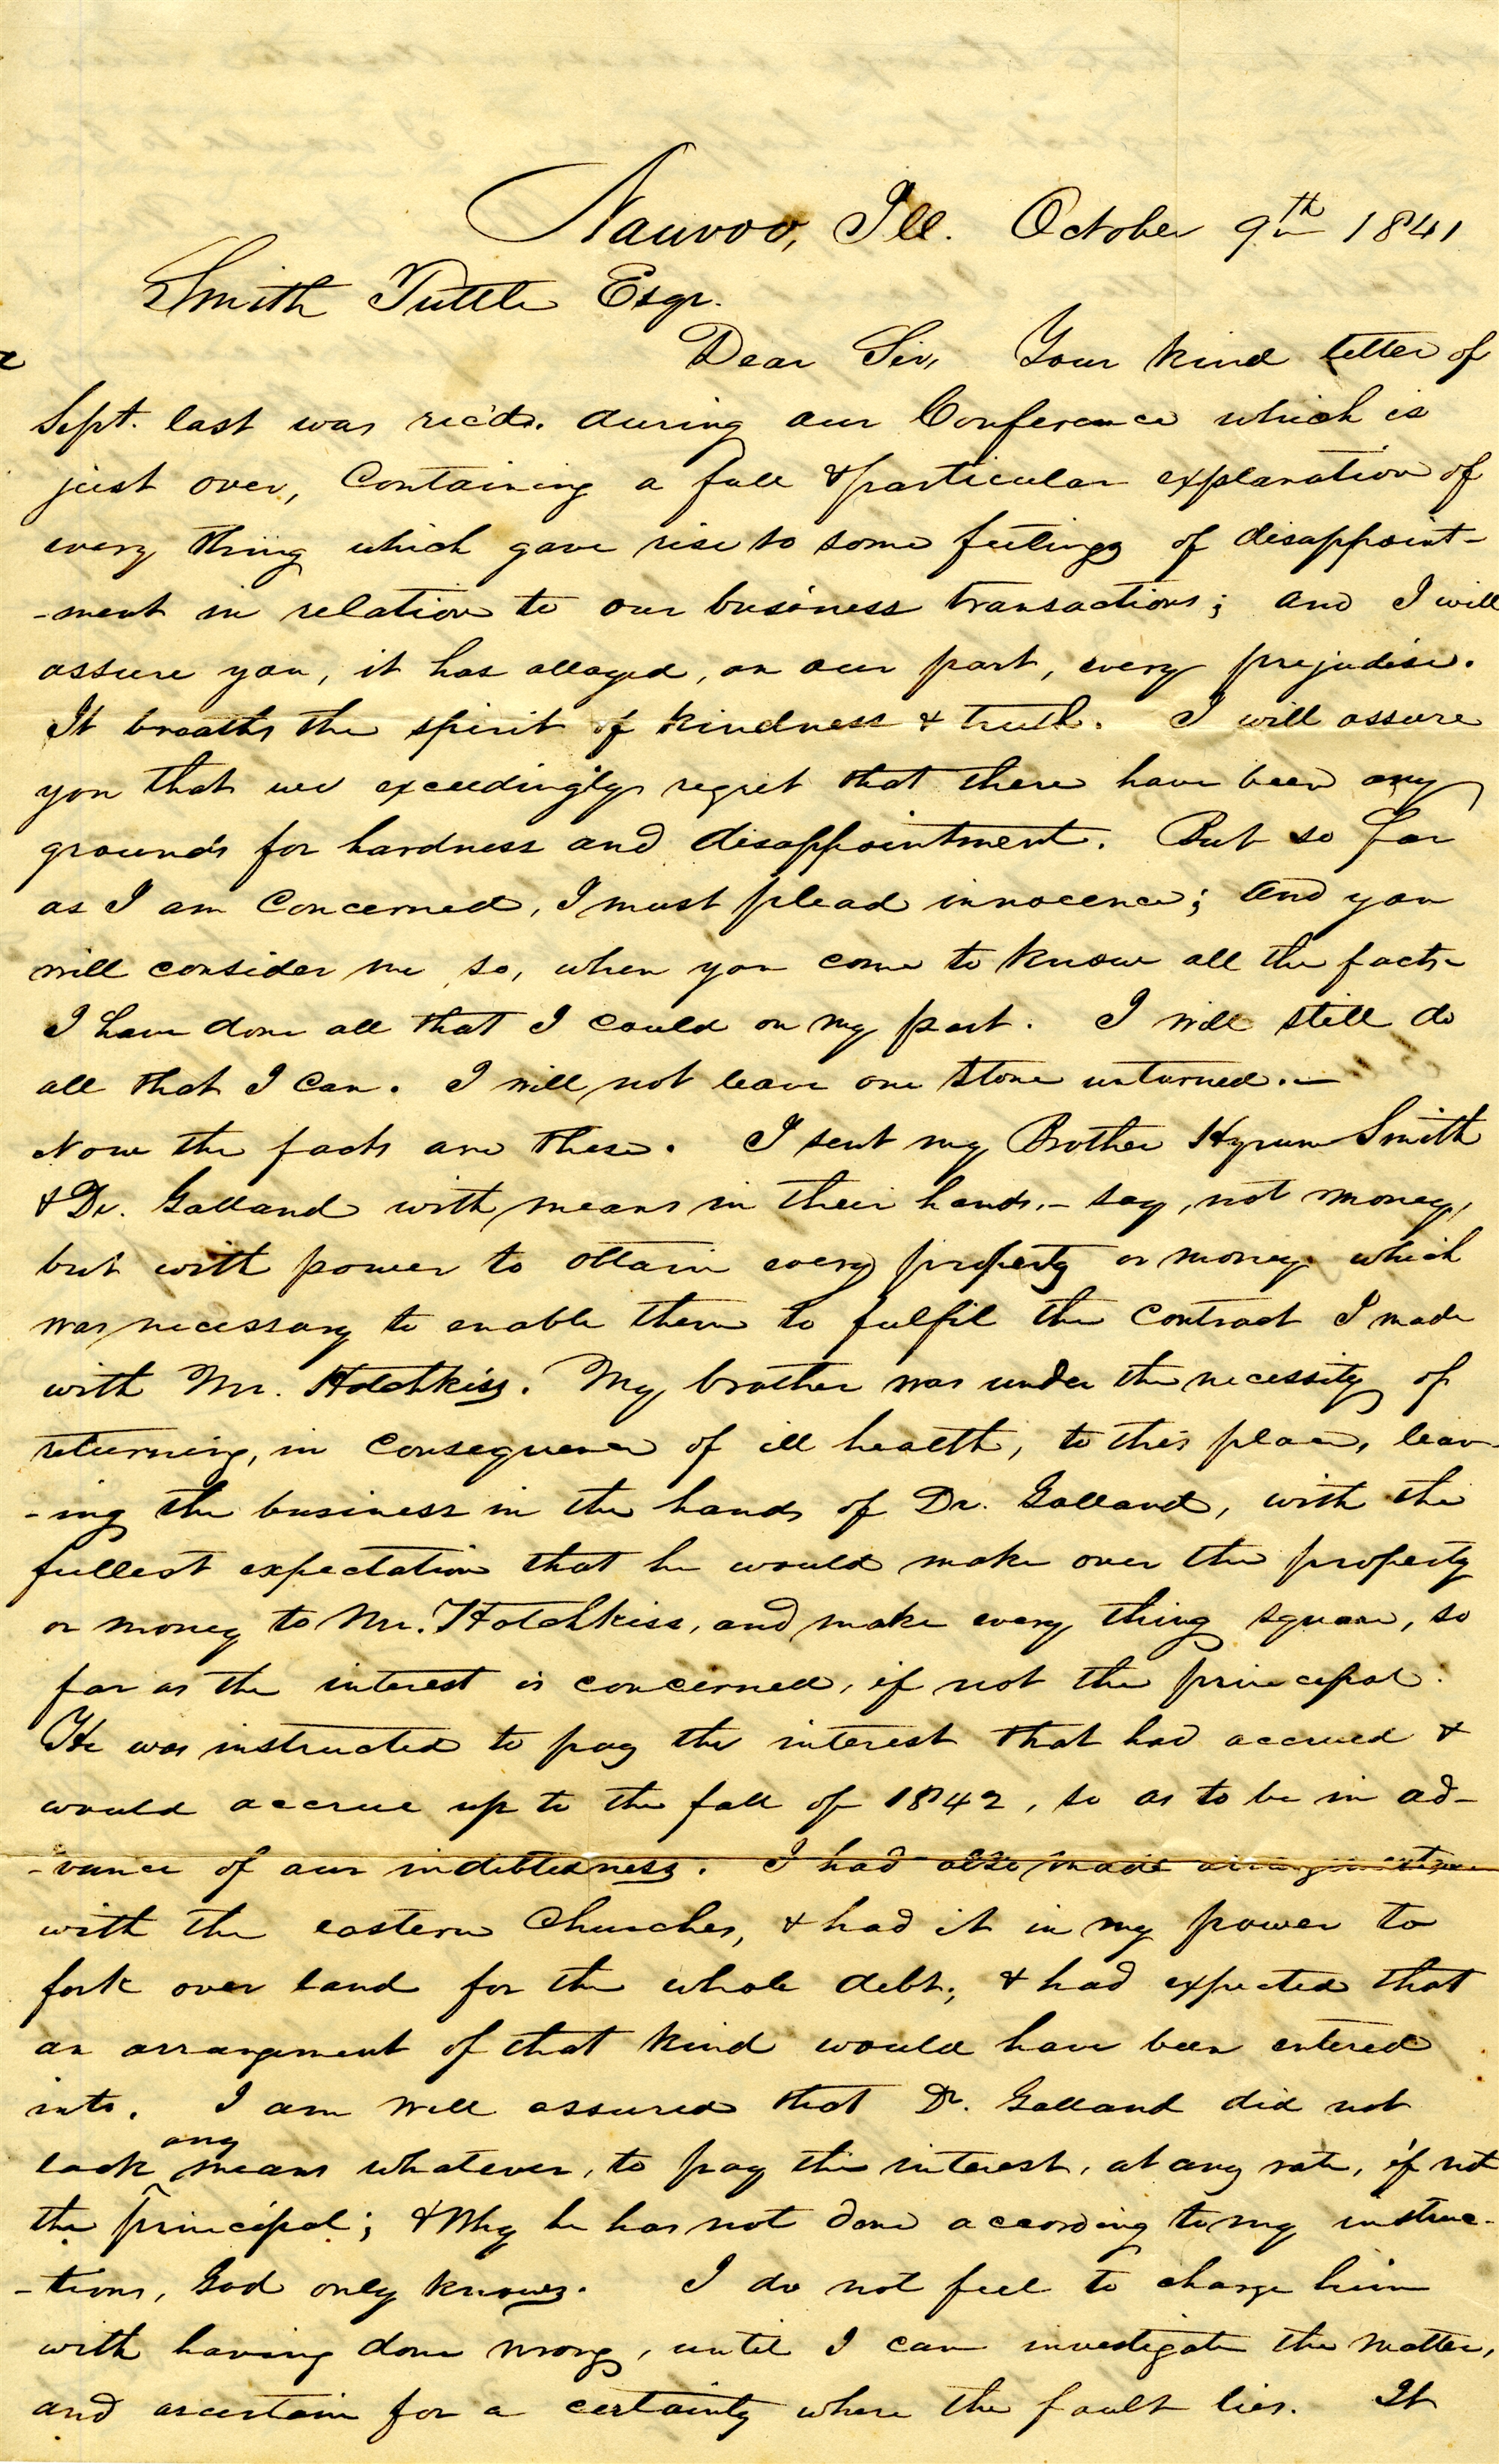 Nauvoo, Ill. October 9th 1841
Smith Tuttle Esqr.
Dear Sir, Your kind letter of
Sept. last was rec'd. during our Conference which is
just over, Containing a full & particular explanation of
every thing which gave rise to some feelings of disappoint-
-ment in relation to our business transactions; and I will
assure you, it has allayed, on our part, every prejudise.
It breaths the spirit of kindness & truth. I will assure
you that we exceedingly regret that there have been any
grounds for hardness and disappointment. But so far
as I am Concerned, I must plead innocence; and you
will consider me so, when you come to know all the facts-
I have done all that I could on my part. I will still do
all that I can. I will not leave one stone unturned.—
Now the facts are these. I sent my Brother Hyrum Smith
& Dr. Galland with means in their hands,- say, not money,
but with power to obtain every property or money which
was necessary to enable them to fulfil the Contract I made
with Mr. Hotchkiss. My brother was under the necessity of
returning, in consequence of ill health, to this place, leav-
-ing the business in the hands of Dr. Galland, with the
fullest expectation that he would make over the property
or money to Mr. Hotchkiss, and make every thing square, so
far as the interest is concerned, if not the principal.
He was instructed to pay the interest that had accrued &
would accrue up to the fall of 1842, so as to be in ad-
-vance of our indebtedness. I had also made arrangements
with the eastern Churches, & had it in my power to
fork over land for the whole debt; & had expected that
an arrangement of that kind would have been entered
into. I am well assured that Dr. Galland did not
lack any means whatever, to pay the interest, at any rate, if not
the principal; & Why he has not done according to my instruc-
-tions, God only knows. I do not feel to charge him
with having done wrong, until I can investigate the matter,
and ascertain for a certainty where the fault lies. It